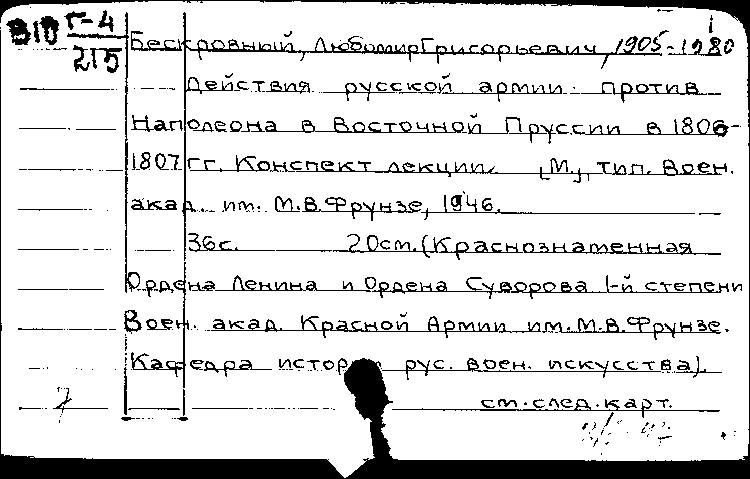 В10 Г-4
215
Бескровный, Любомир Григорьевич, 1905-1980
Действия русской армии против
Наполеона в Восточной Пруссии в 1806-
1807 гг. Конспект лекции. [М.], тип. Воен.
акад. им. М.В.Фрунзе, 1946.
36с. 20см. (Краснознаменная
Ордена Ленина и Ордена Суворова I-й степени
Воен. акад. Красной Армии им. М.В.Фрунзе.
Кафедра истории рус. воен. искусства).
7 см. след. карт.